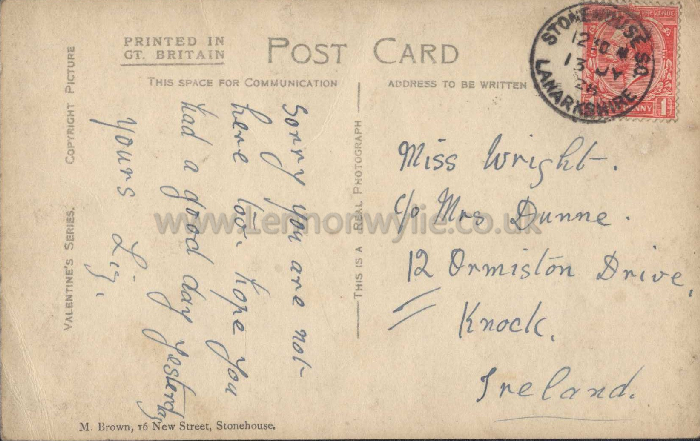 PRINTED IN
GT. BRITAIN
POST CARD
THIS SPACE FOR COMMUNICATION
ADDRESS TO BE WRITTEN
STONEHOUSE S.O.
12 30
13 JY
26
LANARKSHIRE
PENNY
Sorry you are not
here too. hope you
had a good day yesterday
Yours Liz.
Miss Wright.
c/o Mrs Dunne.
12 Ormiston Drive,
Knock,
Ireland.
VALENTINE'S SERIES. COPYRIGHT PICTURE
THIS IS A REAL PHOTOGRAPH
www.Lennonwylie.co.uk
M. Brown, 16 New Street, Stonehouse.